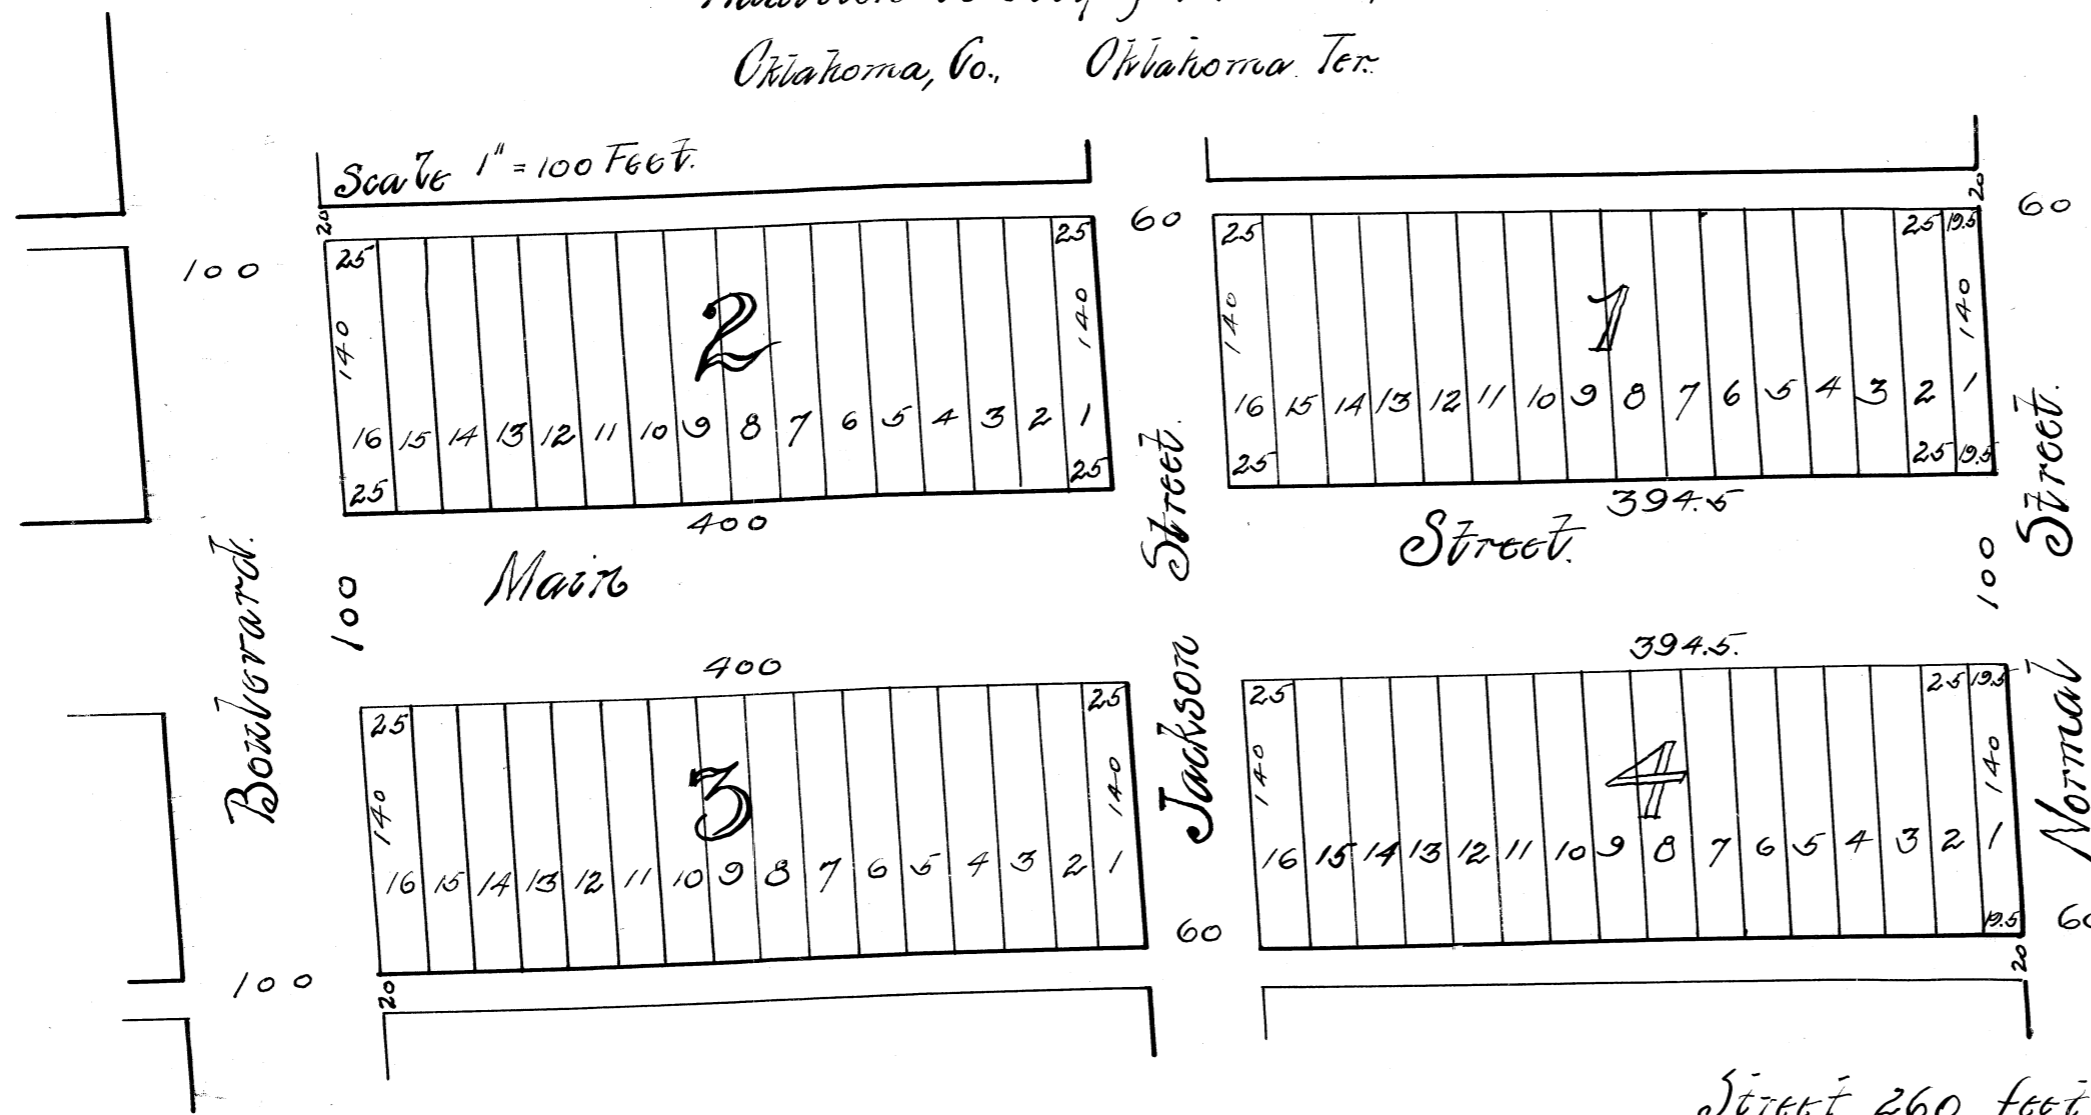 Addition to City of
Oklahoma, Co., Oklahoma Ter.
Scale 1" = 100 Feet.
20
20
60
60
100
25 25
25 25 19.5
2
1
140 140
140 140
16 15 14 13 12 11 10 9 8 7 6 5 4 3 2 1
16 15 14 13 12 11 10 9 8 7 6 5 4 3 2 1
25 25
25 25 19.5
400
394.5
Main Street.
100
100
Boulevard.
Jackson Street.
Normal Street.
400
394.5.
25 25
25 25 19.5
3
4
140 140
140 140
16 15 14 13 12 11 10 9 8 7 6 5 4 3 2 1
16 15 14 13 12 11 10 9 8 7 6 5 4 3 2 1
19.5
60
60
100
20
20
Street 260 feet